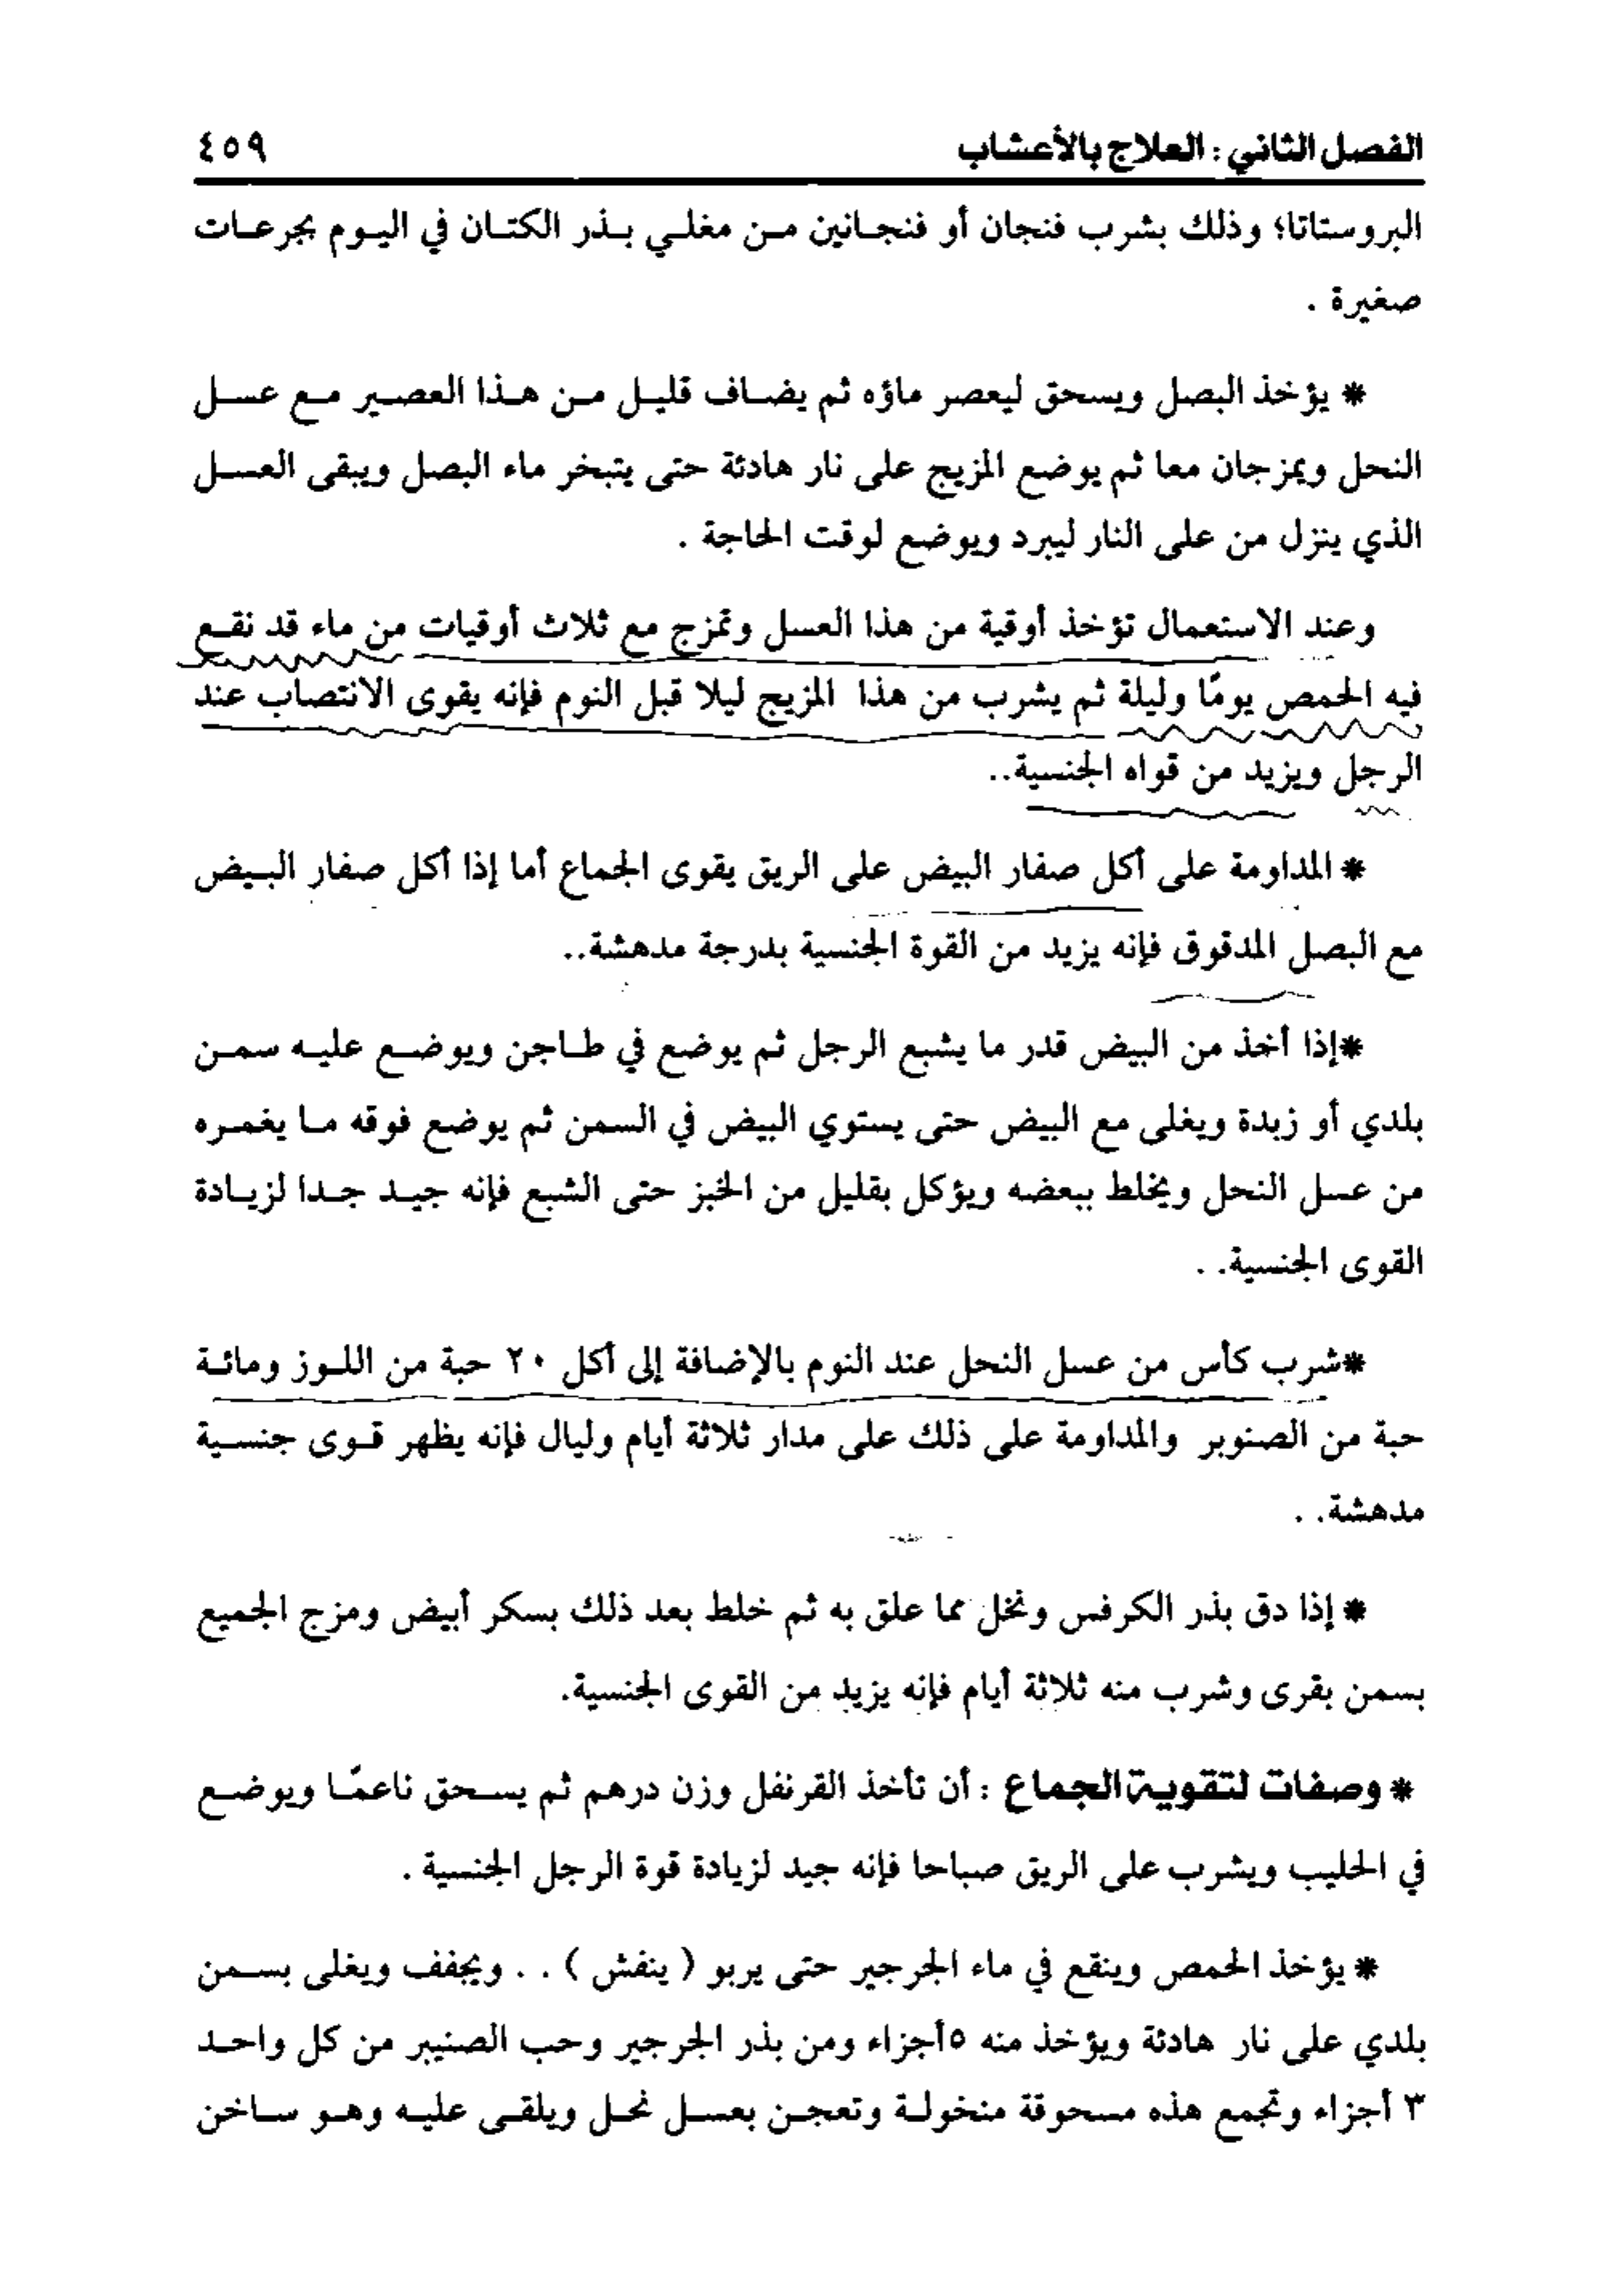 الفصل الثاني : العلاج بالأعشاب ٤٥٩
البروستاتا؛ وذلك بشرب فنجان أو فنجانين من مغلي بذر الكتان في اليوم بجرعات
صغيرة .
* يؤخذ البصل ويسحق ليعصر ماؤه ثم يضاف قليل من هذا العصير مع عسل
النحل ويمزجان معا ثم يوضع المزيج على نار هادئة حتى يتبخر ماء البصل ويبقى العسل
الذي ينزل من على النار ليبرد ويوضع لوقت الحاجة .
وعند الاستعمال تؤخذ أوقية من هذا العسل وتمزج مع ثلاث أوقيات من ماء قد نقع
فيه الحمص يومًا وليلة ثم يشرب من هذا المزيج ليلا قبل النوم فإنه يقوى الانتصاب عند
الرجل ويزيد من قواه الجنسية..
* المداومة على أكل صفار البيض على الريق يقوى الجماع أما إذا أكل صفار البيض
مع البصل المدقوق فإنه يزيد من القوة الجنسية بدرجة مدهشة..
*إذا أخذ من البيض قدر ما يشبع الرجل ثم يوضع في طاجن ويوضع عليه سمن
بلدي أو زبدة ويغلى مع البيض حتى يستوي البيض في السمن ثم يوضع فوقه ما يغمره
من عسل النحل ويخلط ببعضه ويؤكل بقليل من الخبز حتى الشبع فإنه جيد جدا لزيادة
القوى الجنسية. .
*شرب كأس من عسل النحل عند النوم بالإضافة إلى أكل ٢٠ حبة من اللوز ومائة
حبة من الصنوبر والمداومة على ذلك على مدار ثلاثة أيام وليال فإنه يظهر قوى جنسية
مدهشة. .
* إذا دق بذر الكرفس ونخل مما علق به ثم خلط بعد ذلك بسكر أبيض ومزج الجميع
بسمن بقرى وشرب منه ثلاثة أيام فإنه يزيد من القوى الجنسية.
* وصفات لتقوية الجماع : أن تأخذ القرنفل وزن درهم ثم يسحق ناعمًا ويوضع
في الحليب ويشرب على الريق صباحا فإنه جيد لزيادة قوة الرجل الجنسية .
* يؤخذ الحمص وينقع في ماء الجرجير حتى يربو ( ينفش ) . . ويجفف ويغلى بسمن
بلدي على نار هادئة ويؤخذ منه ٥أجزاء ومن بذر الجرجير وحب الصنيبر من كل واحد
٣ أجزاء وتجمع هذه مسحوقة منخولة وتعجن بعسل نحل ويلقى عليه وهو ساخن